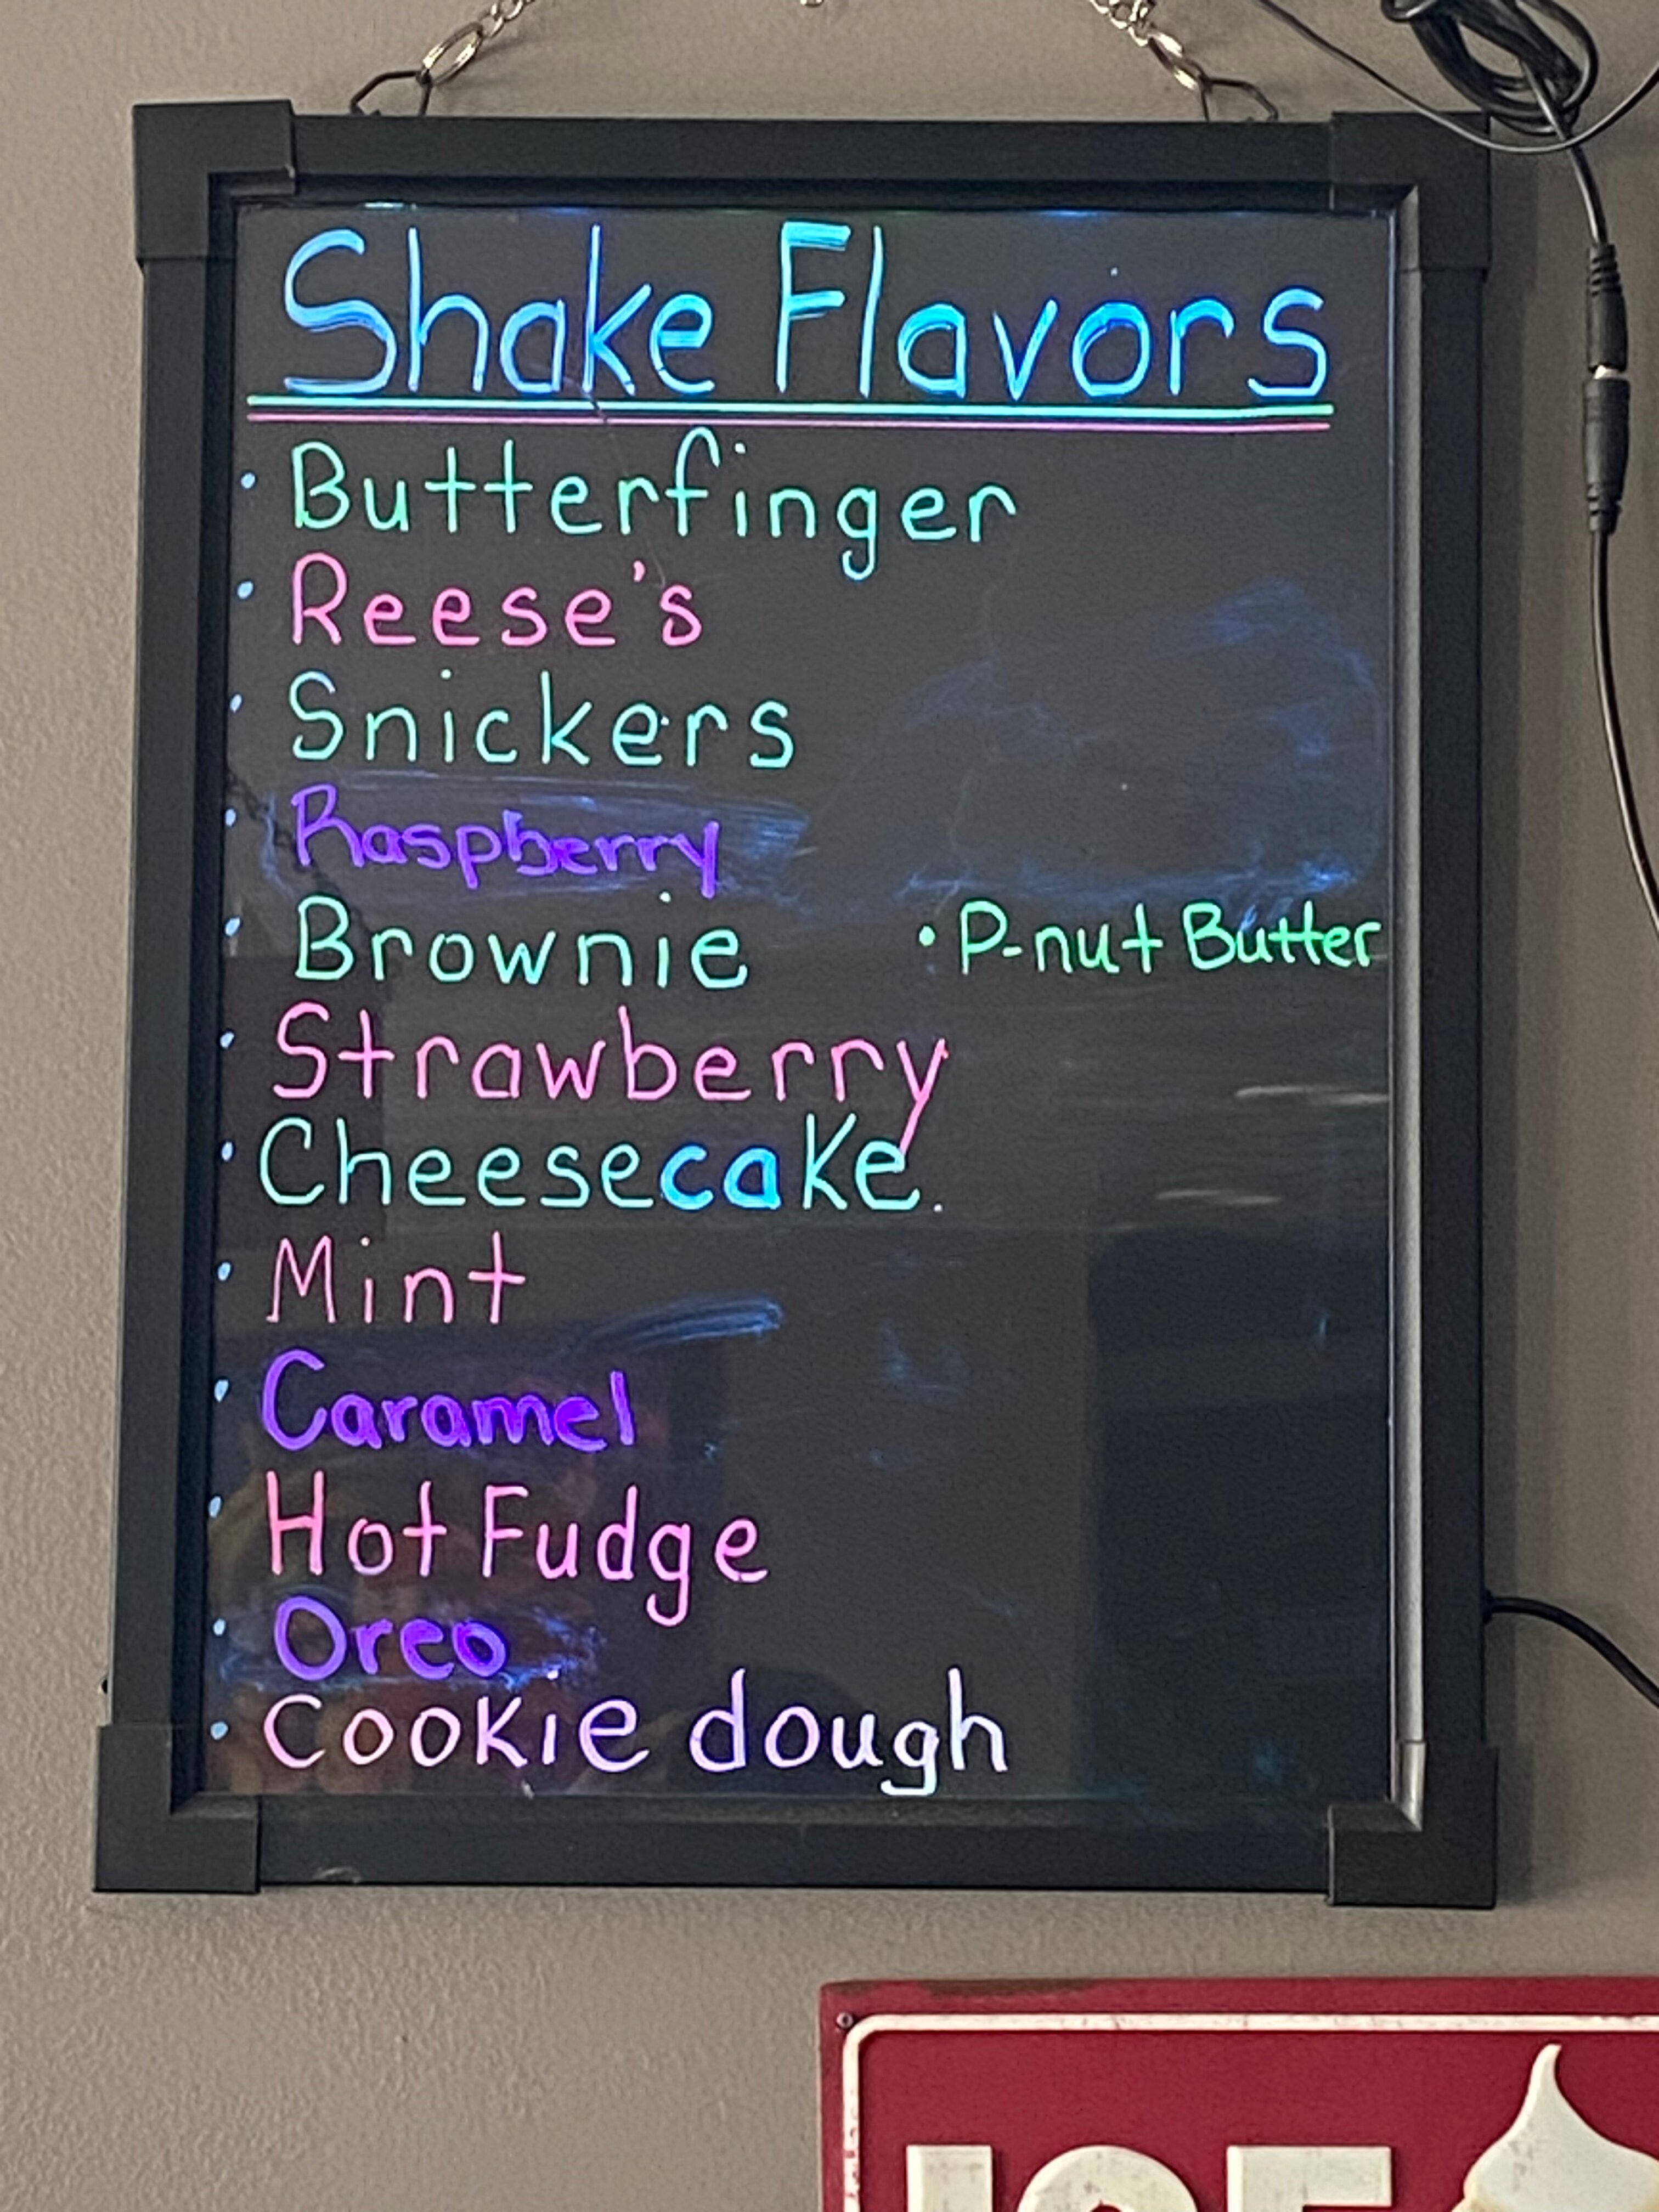 Shake Flavors
• Butterfinger
• Reese's
• Snickers
• Raspberry
• Brownie
• P-nut Butter
• Strawberry
• Cheesecake.
• Mint
• Caramel
• Hot Fudge
• Oreo
• Cookie dough
ICE